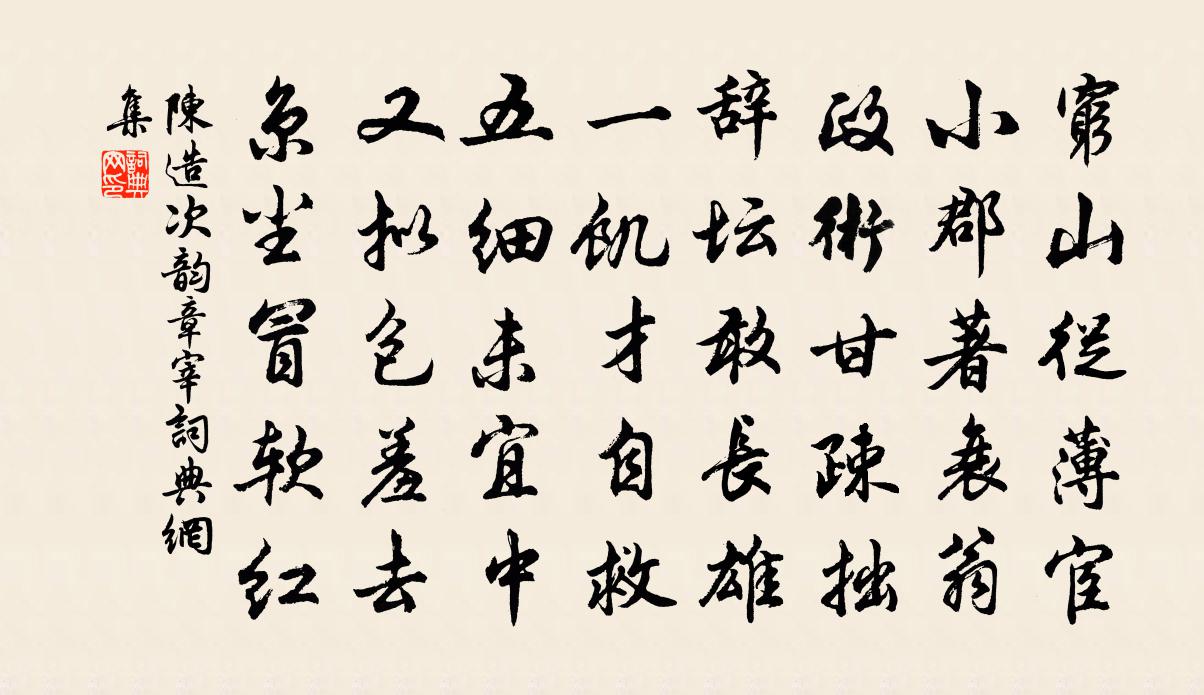 窮山從薄宦
小郡著衰翁
政術甘疎拙
辞坛敢長雄
一飢才自救
五細未宜中
又拟包羞去
京尘冒软红
陳造次韵章宰詞典網
集
詞典
网印